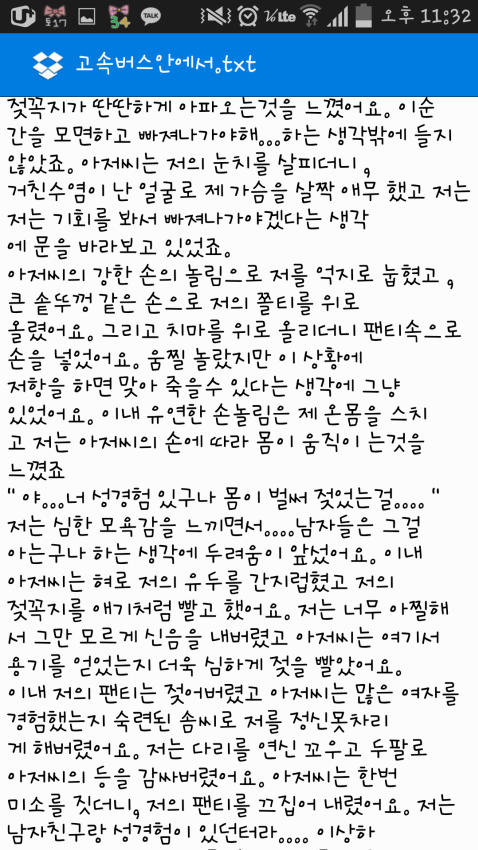 오후 11:32
고속버스안에서.txt
젖꼭지가 딴딴하게 아파오는것을 느꼈어요. 이순
간을 모면하고 빠져나가야해...하는 생각밖에 들지
않았죠. 아저씨는 저의 눈치를 살피더니 ,
거친수염이 난 얼굴로 제 가슴을 살짝 애무 했고 저는
저는 기회를 봐서 빠져나가야겠다는 생각
에 문을 바라보고 있었죠.
아저씨의 강한 손의 놀림으로 저를 억지로 눕혔고 ,
큰 솥뚜껑 같은 손으로 저의 쫄티를 위로
올렸어요. 그리고 치마를 위로 올리더니 팬티속으로
손을 넣었어요. 움찔 놀랐지만 이 상황에
저항을 하면 맞아 죽을수 있다는 생각에 그냥
있었어요. 이내 유연한 손놀림은 제 온몸을 스치
고 저는 아저씨의 손에 따라 몸이 움직이 는것을
느꼈죠
" 야...너 성경험 있구나 몸이 벌써 젖었는걸.... "
저는 심한 모욕감을 느끼면서....남자들은 그걸
아는구나 하는 생각에 두려움이 앞섰어요. 이내
아저씨는 혀로 저의 유두를 간지럽혔고 저의
젖꼭지를 애기처럼 빨고 했어요. 저는 너무 아찔해
서 그만 모르게 신음을 내버렸고 아저씨는 여기서
용기를 얻었는지 더욱 심하게 젖을 빨았어요.
이내 저의 팬티는 젖어버렸고 아저씨는 많은 여자를
경험했는지 숙련된 솜씨로 저를 정신못차리
게 해버렸어요. 저는 다리를 연신 꼬우고 두팔로
아저씨의 등을 감싸버렸어요. 아저씨는 한번
미소를 짓더니, 저의 팬티를 끄집어 내렸어요. 저는
남자친구랑 성경험이 있던터라.... 이상하